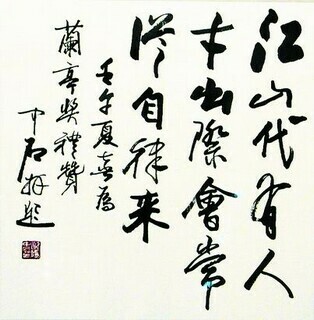 江山代有人
才出際會常
從自律来
壬午夏喜為
蘭亭奨禮贊
中石題